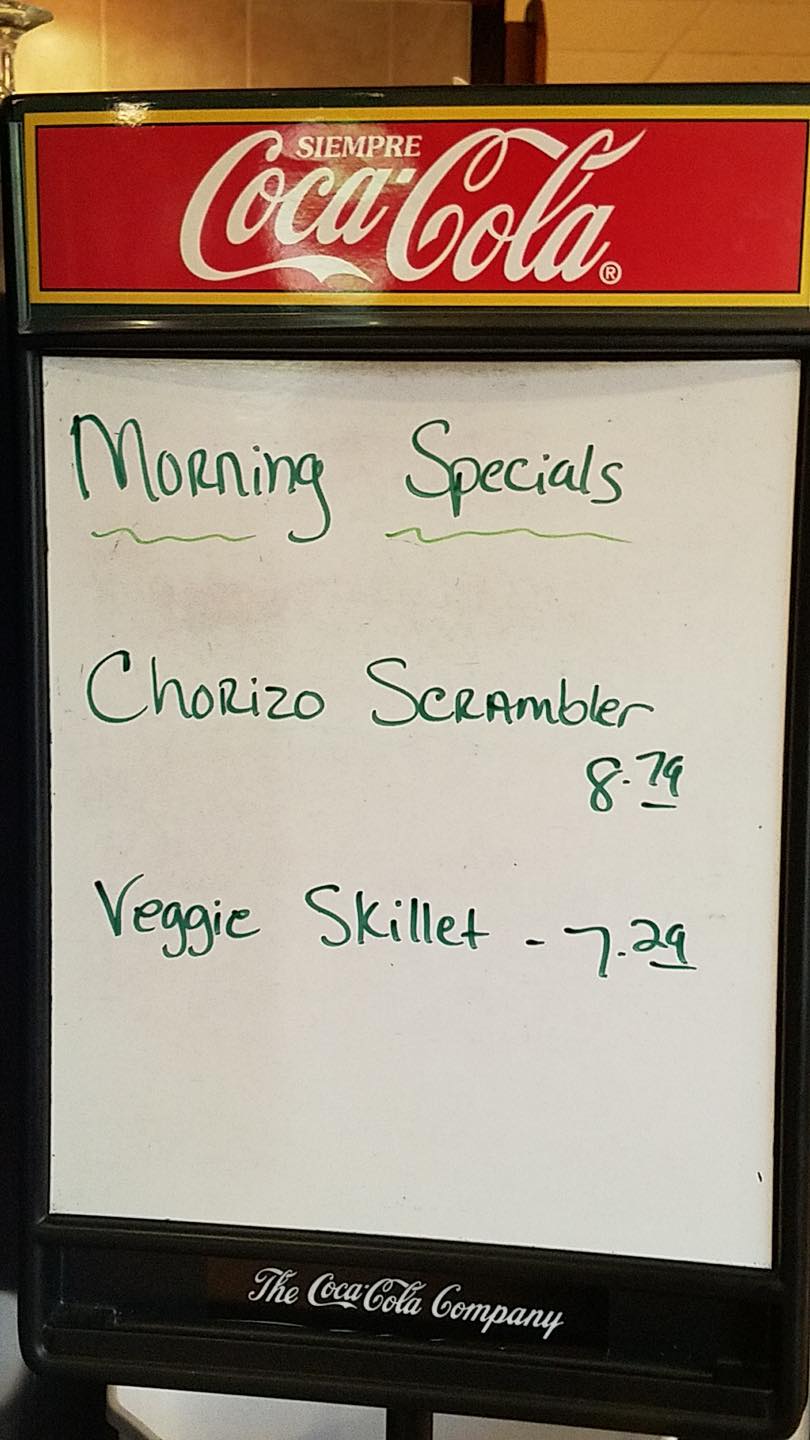 SIEMPRE
Coca-Cola®
Morning Specials
Chorizo Scrambler
8.79
Veggie Skillet - 7.29
The Coca-Cola Company